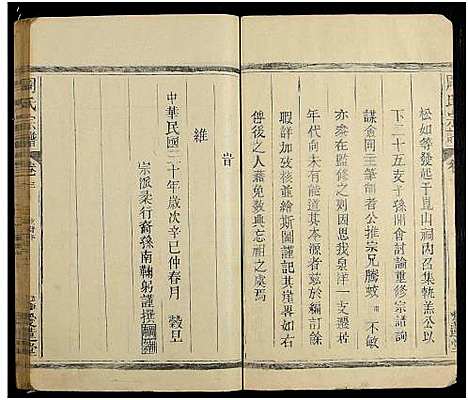 松如等發起于崑山祠內召集執羔公以
下二十五支子孫開會討論重修宗譜詢
謀僉同主筆師者公推宗兄騰蛟 不敏
亦忝在監修之列因思我泉洋一支遷
年代向未有能道其本源者茲於編訂餘
暇詳加攷核並繪斯圖謹記其崖畧如右
俾後之人藉免數典忘祖之虞焉
維 旹
中華民國三十年歲次辛巳仲春月 穀旦
宗派柔行裔孫南鞠躬謹撰
周氏宗譜 卷
愛蓮堂